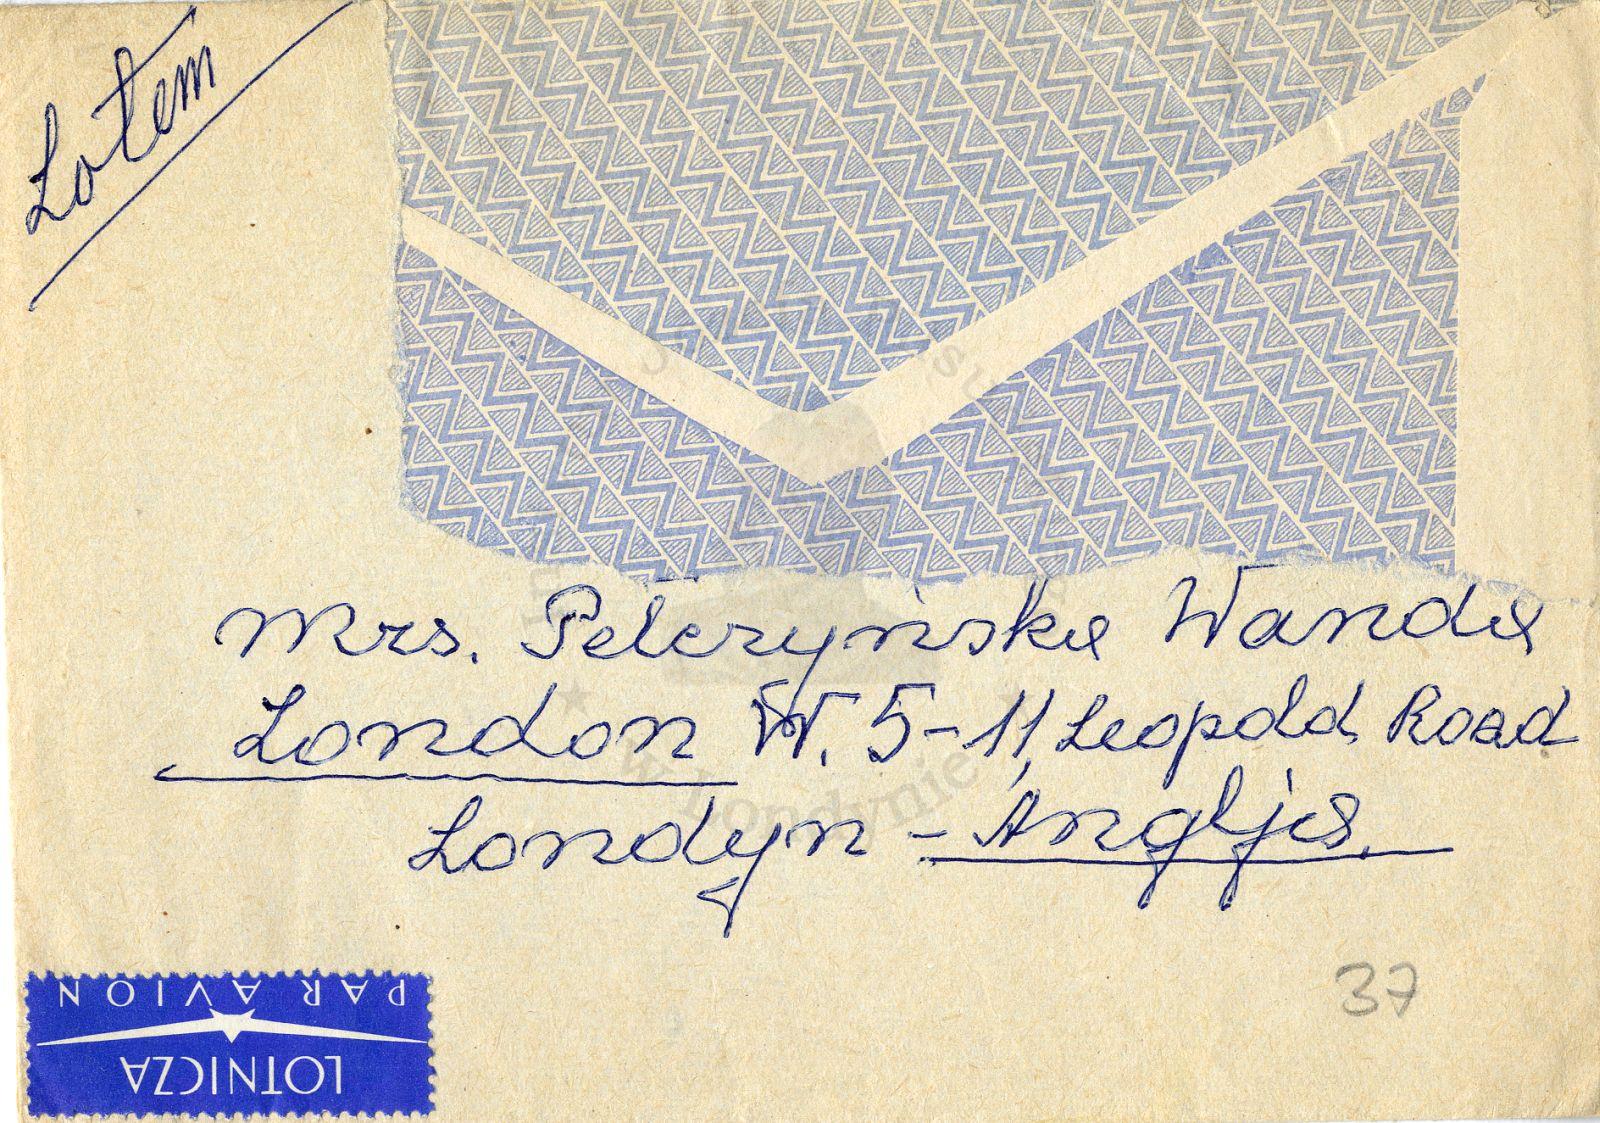 Lotem
Mrs. Pełczyńska Wanda
London W. 5-11, Leopold Road
Londyn - Anglja.
37
LOTNICZA
PAR AVION
w Londynie